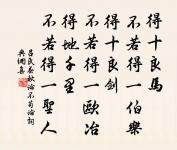 得十良馬
不若得一伯樂
得十良劍
不若得一歐冶
得地千里
不若得一聖人
呂氏春秋論不苟論詞
典網集